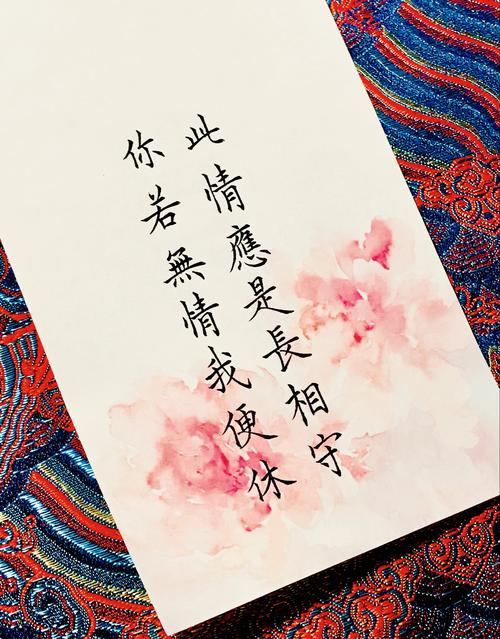 此情應是長相守
你若無情我便休